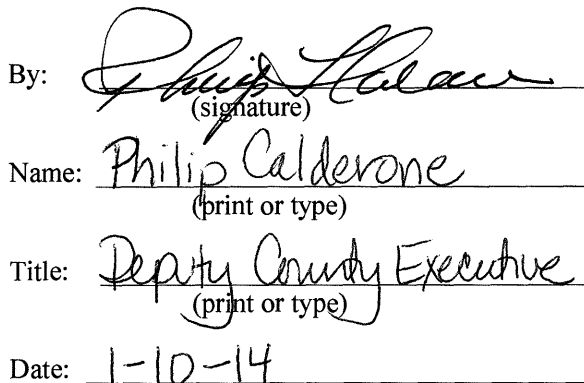 By: Philip
(signature)
Name: Philip Calderone
(print or type)
Title: Deputy County Executive
(print or type)
Date: 1-10-14